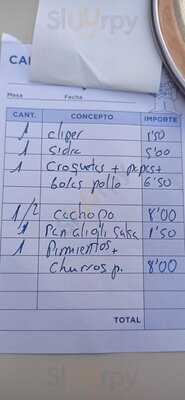 Sluurpy
CA
Mesa Fecha
CANT. CONCEPTO IMPORTE
1 cliper 1'50
1 Sidra 5'00
1 Croquetas + papas +
bolas pollo 6'50
1/2 Cachopo 8'00
1 Pan aligli Salsa 1'50
1 Pimientos +
Churros p. 8'00
TOTAL
Sluurpy